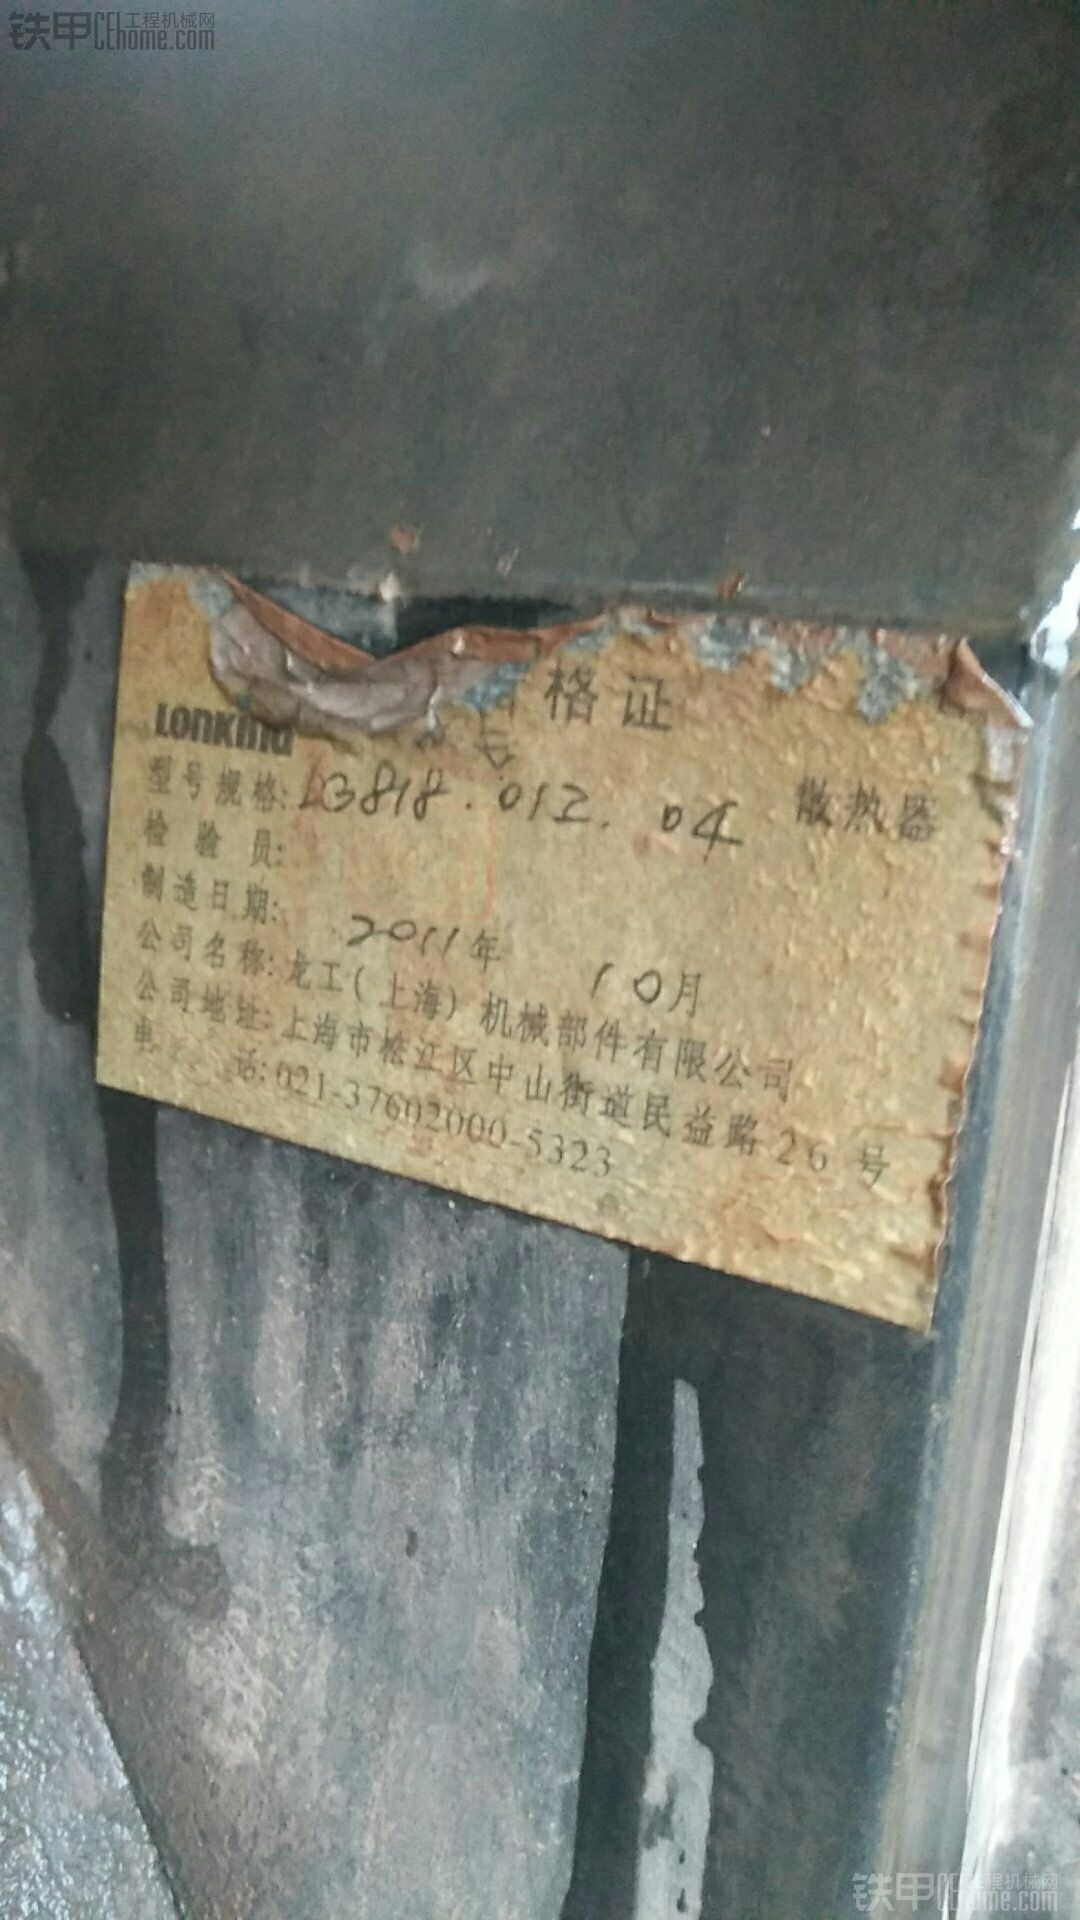 铁甲 工程机械网
CEhome.com
格证
LONKING
型号规格: LG818.012.04 散热器
检验员:
制造日期: 2011年 10月
公司名称: 龙工(上海)机械部件有限公司
公司地址: 上海市松江区中山街道民益路26号
电话: 021-37602000-5323
铁甲 工程机械网
CEhome.com